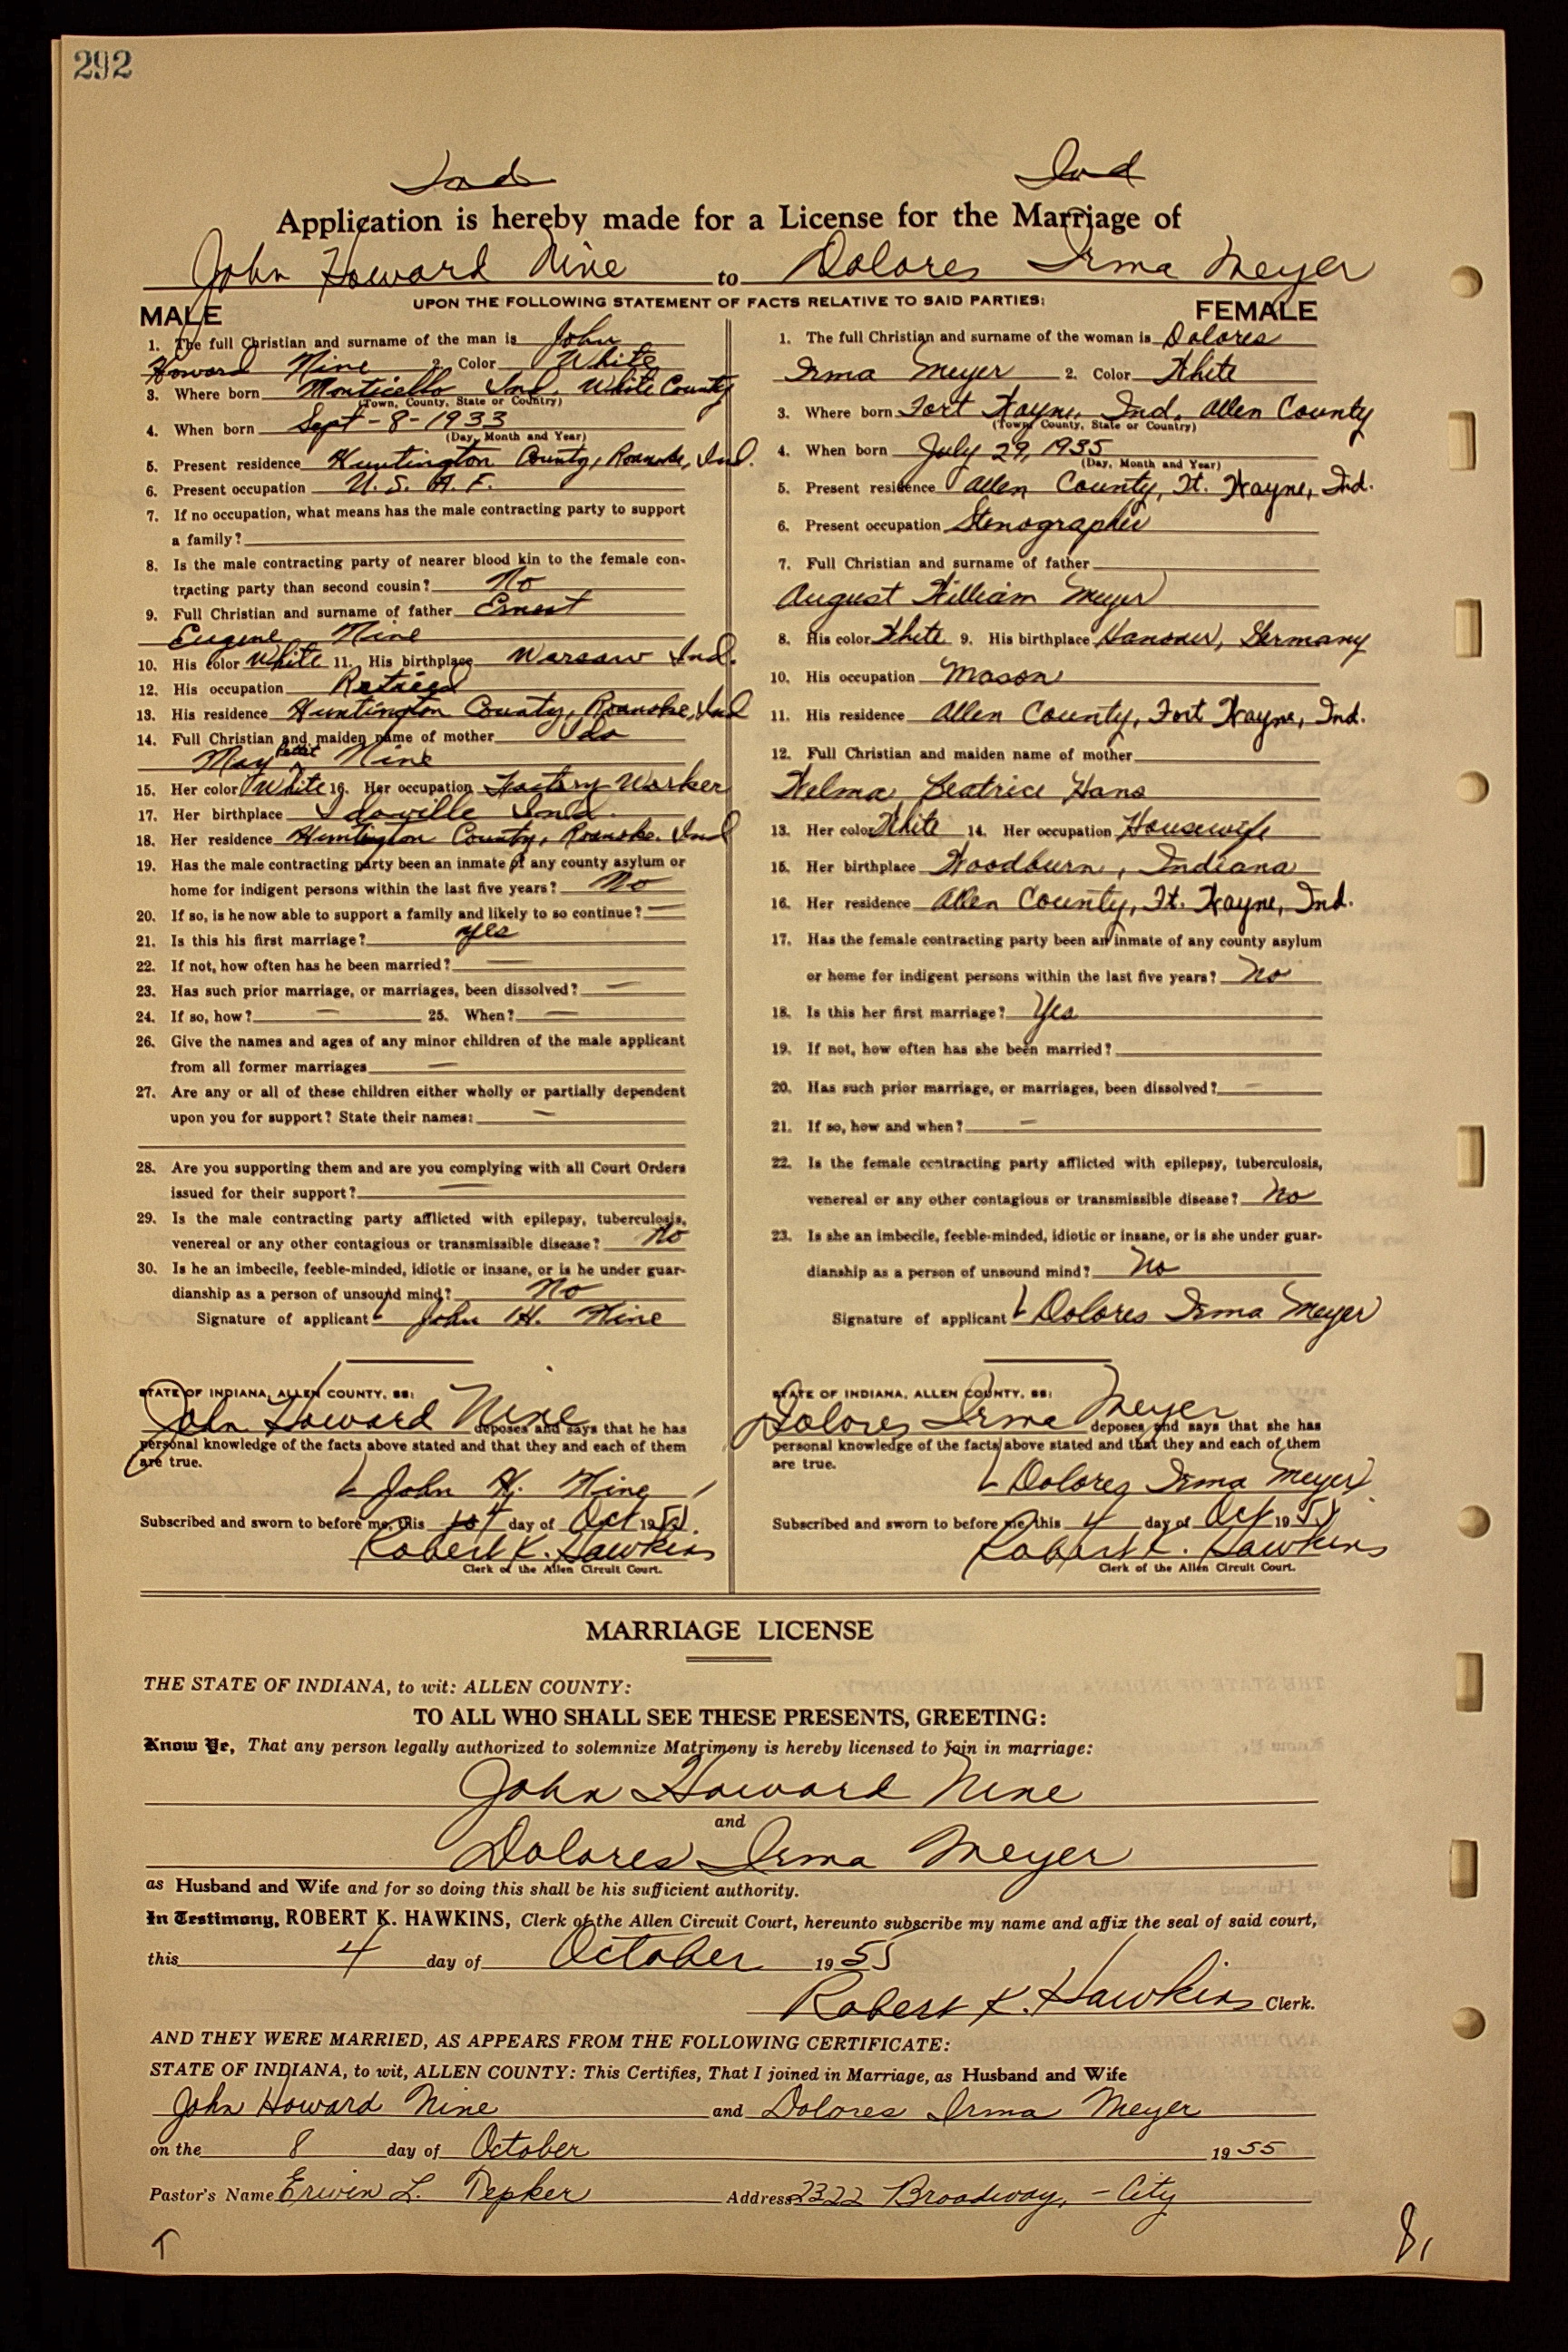 292
Ind Ind
Application is hereby made for a License for the Marriage of
John Howard Nine to Dolores Irma Meyer
UPON THE FOLLOWING STATEMENT OF FACTS RELATIVE TO SAID PARTIES:
MALE
1. The full Christian and surname of the man is John
Howard Nine 2. Color White
3. Where born Monticello Ind. White County
(Town, County, State or Country)
4. When born Sept-8-1933
(Day, Month and Year)
5. Present residence Huntington County, Roanoke, Ind.
6. Present occupation U. S. A. F.
7. If no occupation, what means has the male contracting party to support
a family?
8. Is the male contracting party of nearer blood kin to the female con-
tracting party than second cousin? No
9. Full Christian and surname of father Ernest
Eugene Nine
10. His color White 11. His birthplace Warsaw Ind.
12. His occupation Retired
13. His residence Huntington County, Roanoke, Ind
14. Full Christian and maiden name of mother Ida
May Pettit Nine
15. Her color White 16. Her occupation Factory Worker
17. Her birthplace Idaville Ind.
18. Her residence Huntington County, Roanoke. Ind
19. Has the male contracting party been an inmate of any county asylum or
home for indigent persons within the last five years? No
20. If so, is he now able to support a family and likely to so continue? —
21. Is this his first marriage? yes
22. If not, how often has he been married? —
23. Has such prior marriage, or marriages, been dissolved? —
24. If so, how? — 25. When? —
26. Give the names and ages of any minor children of the male applicant
from all former marriages —
27. Are any or all of these children either wholly or partially dependent
upon you for support? State their names: —
28. Are you supporting them and are you complying with all Court Orders
issued for their support? —
29. Is the male contracting party afflicted with epilepsy, tuberculosis,
venereal or any other contagious or transmissible disease? No
30. Is he an imbecile, feeble-minded, idiotic or insane, or is he under guar-
dianship as a person of unsound mind? No
Signature of applicant John H. Nine
STATE OF INDIANA, ALLEN COUNTY, SS:
John Howard Nine deposes and says that he has
personal knowledge of the facts above stated and that they and each of them
are true.
John H. Nine
Subscribed and sworn to before me, this day of Oct 1955.
Robert K. Hawkins
Clerk of the Allen Circuit Court.
FEMALE
1. The full Christian and surname of the woman is Dolores
Irma Meyer 2. Color White
3. Where born Fort Wayne, Ind. Allen County
(Town, County, State or Country)
4. When born July 29, 1935
(Day, Month and Year)
5. Present residence Allen County, Ft. Wayne, Ind.
6. Present occupation Stenographer
7. Full Christian and surname of father
August William Meyer
8. His color White 9. His birthplace Hanover, Germany
10. His occupation Mason
11. His residence Allen County, Fort Wayne, Ind.
12. Full Christian and maiden name of mother
Welma Beatrice Hans
13. Her color White 14. Her occupation Housewife
15. Her birthplace Woodburn, Indiana
16. Her residence Allen County, Ft. Wayne, Ind.
17. Has the female contracting party been an inmate of any county asylum
or home for indigent persons within the last five years? No
18. Is this her first marriage? Yes
19. If not, how often has she been married?
20. Has such prior marriage, or marriages, been dissolved? —
21. If so, how and when? —
22. Is the female contracting party afflicted with epilepsy, tuberculosis,
venereal or any other contagious or transmissible disease? No
23. Is she an imbecile, feeble-minded, idiotic or insane, or is she under guar-
dianship as a person of unsound mind? No
Signature of applicant Dolores Irma Meyer
STATE OF INDIANA, ALLEN COUNTY, SS:
Dolores Irma Meyer deposes and says that she has
personal knowledge of the facts above stated and that they and each of them
are true.
Dolores Irma Meyer
Subscribed and sworn to before me, this 4 day of Oct 1955
Robert K. Hawkins
Clerk of the Allen Circuit Court.
MARRIAGE LICENSE
THE STATE OF INDIANA, to wit: ALLEN COUNTY:
TO ALL WHO SHALL SEE THESE PRESENTS, GREETING:
Know Ye, That any person legally authorized to solemnize Matrimony is hereby licensed to join in marriage:
John Howard Nine
and
Dolores Irma Meyer
as Husband and Wife and for so doing this shall be his sufficient authority.
In Testimony, ROBERT K. HAWKINS, Clerk of the Allen Circuit Court, hereunto subscribe my name and affix the seal of said court,
this 4 day of October 1955
Robert K. Hawkins Clerk.
AND THEY WERE MARRIED, AS APPEARS FROM THE FOLLOWING CERTIFICATE:
STATE OF INDIANA, to wit, ALLEN COUNTY: This Certifies, That I joined in Marriage, as Husband and Wife
John Howard Nine and Dolores Irma Meyer
on the 8 day of October 1955
Pastor's Name Erwin L. Tepker Address 2322 Broadway, - City